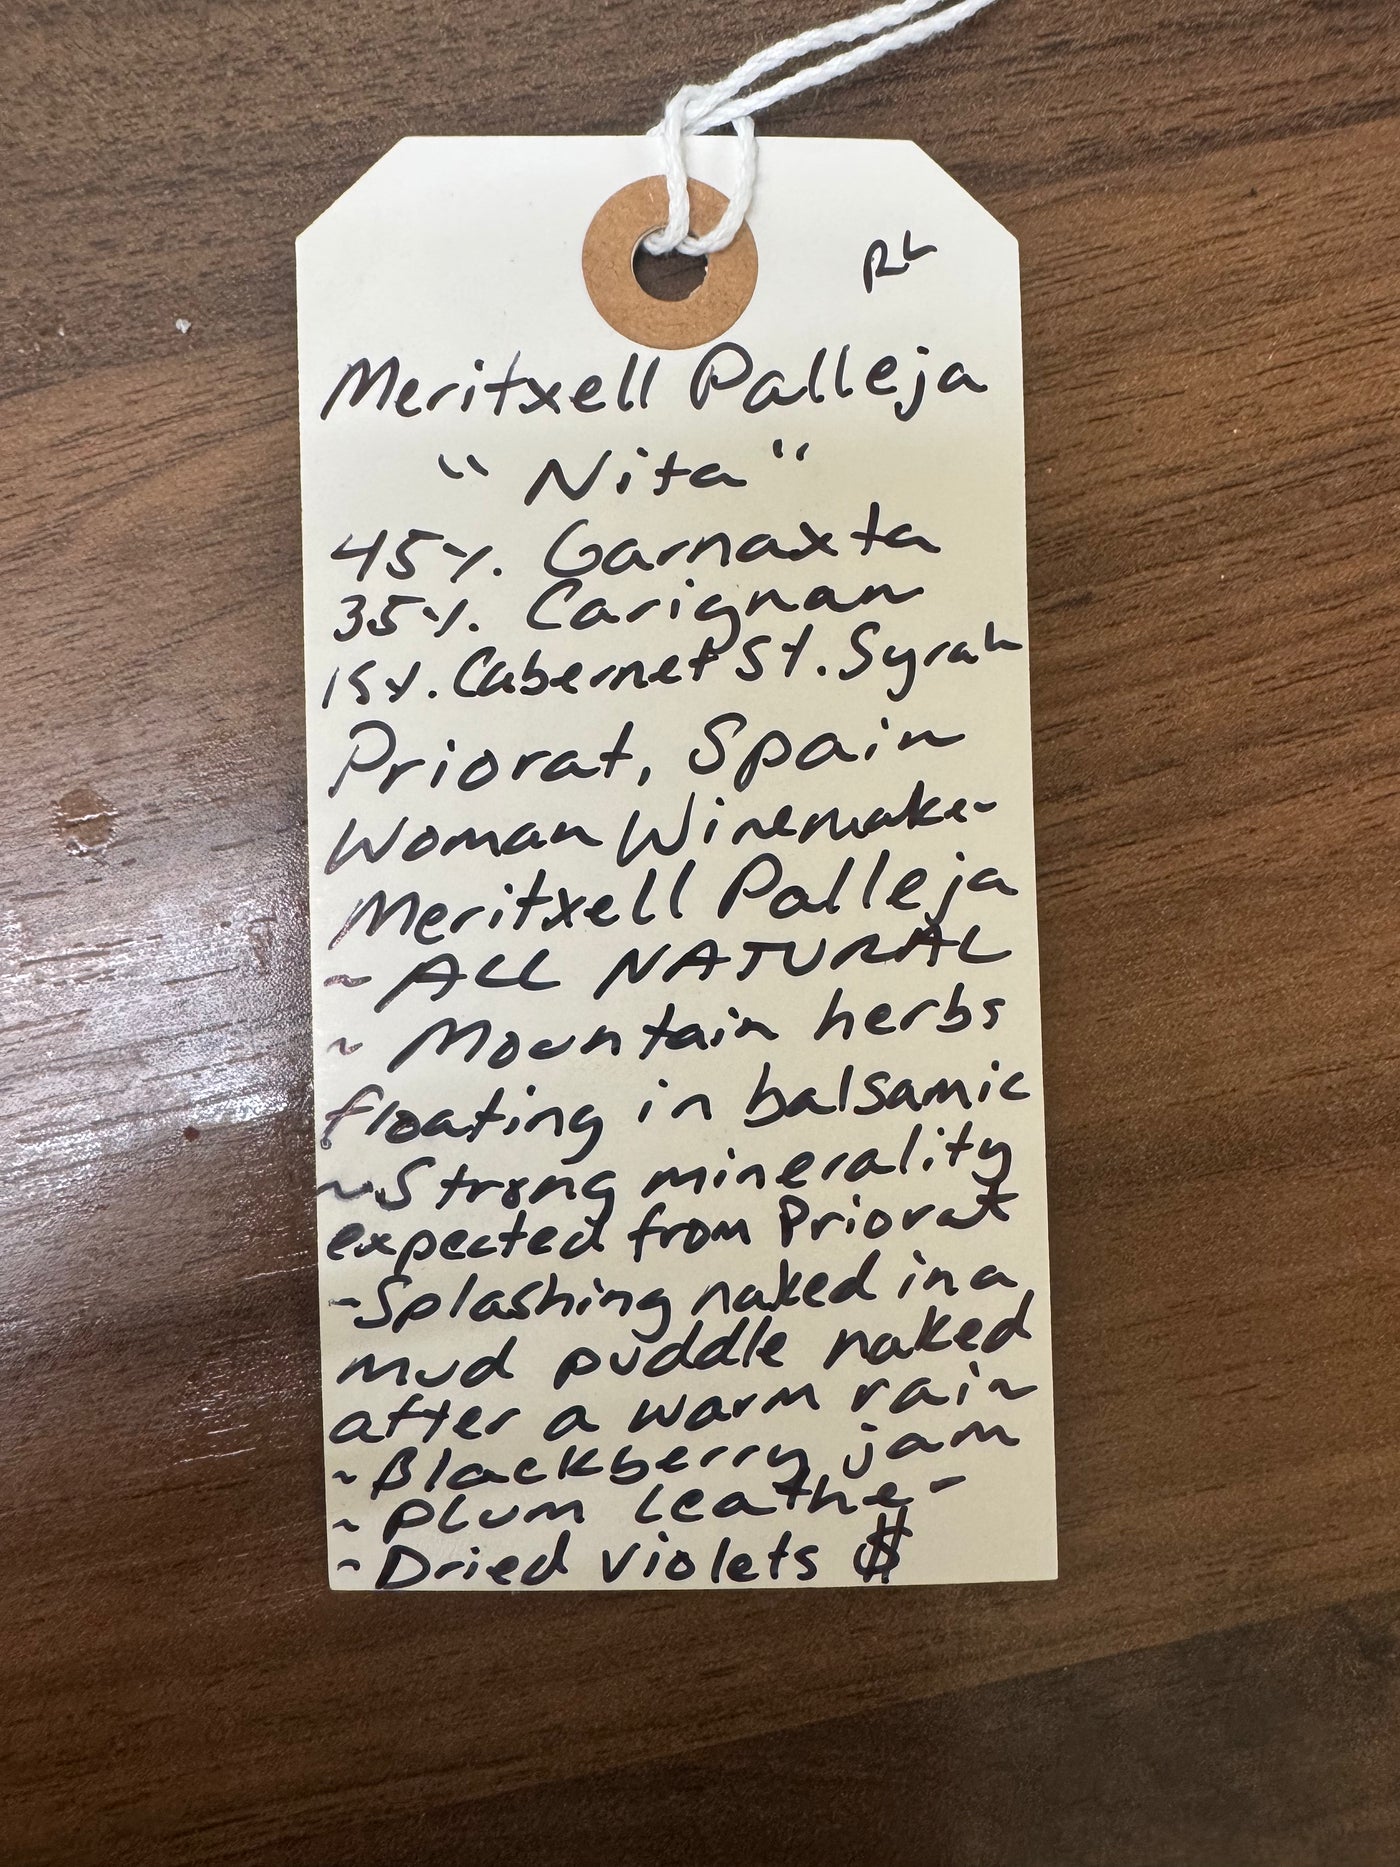 RL
Meritxell Palleja
"Nita"
45%. Garnaxta
35%. Carignan
15%. Cabernet 5%. Syrah
Priorat, Spain
Woman Winemaker
Meritxell Palleja
~ ALL NATURAL
~ Mountain herbs
floating in balsamic
~ Strong minerality
expected from Priorat
- Splashing naked in a
mud puddle naked
after a warm rain
~ Blackberry jam
~ Plum leather
~ Dried violets $